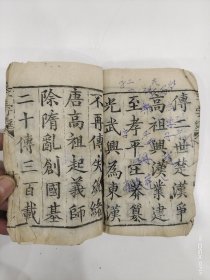 傳二世楚漢爭
高祖興漢業建
至孝平王莽篡
光武興為東漢
不再傳失統緒
唐高祖起義師
除隋亂創國基
二十傳三百載